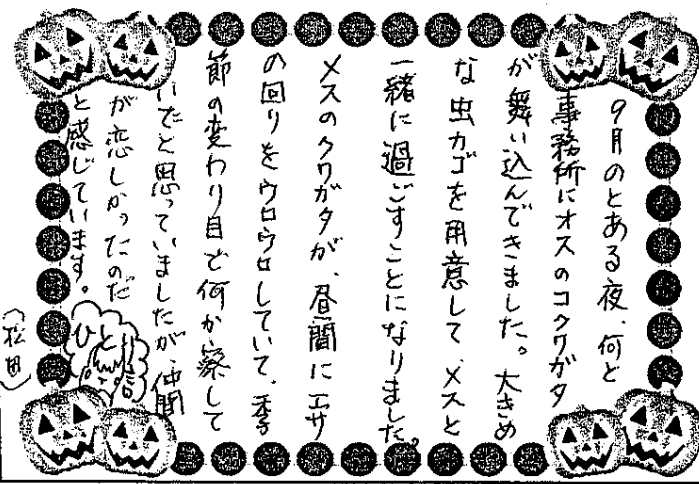 9月のとある夜、何と
事務所にオスのコクワガタ
が舞い込んできました。大きめ
な虫カゴを用意して、メスと
一緒に過ごすことになりました。
メスのクワガタが、昼間にエサ
の回りをウロウロしていて、季
節の変わり目で何か察して
いたと思っていましたが、仲間
が恋しかったのだ
と感じています。
ひと言
(松田)